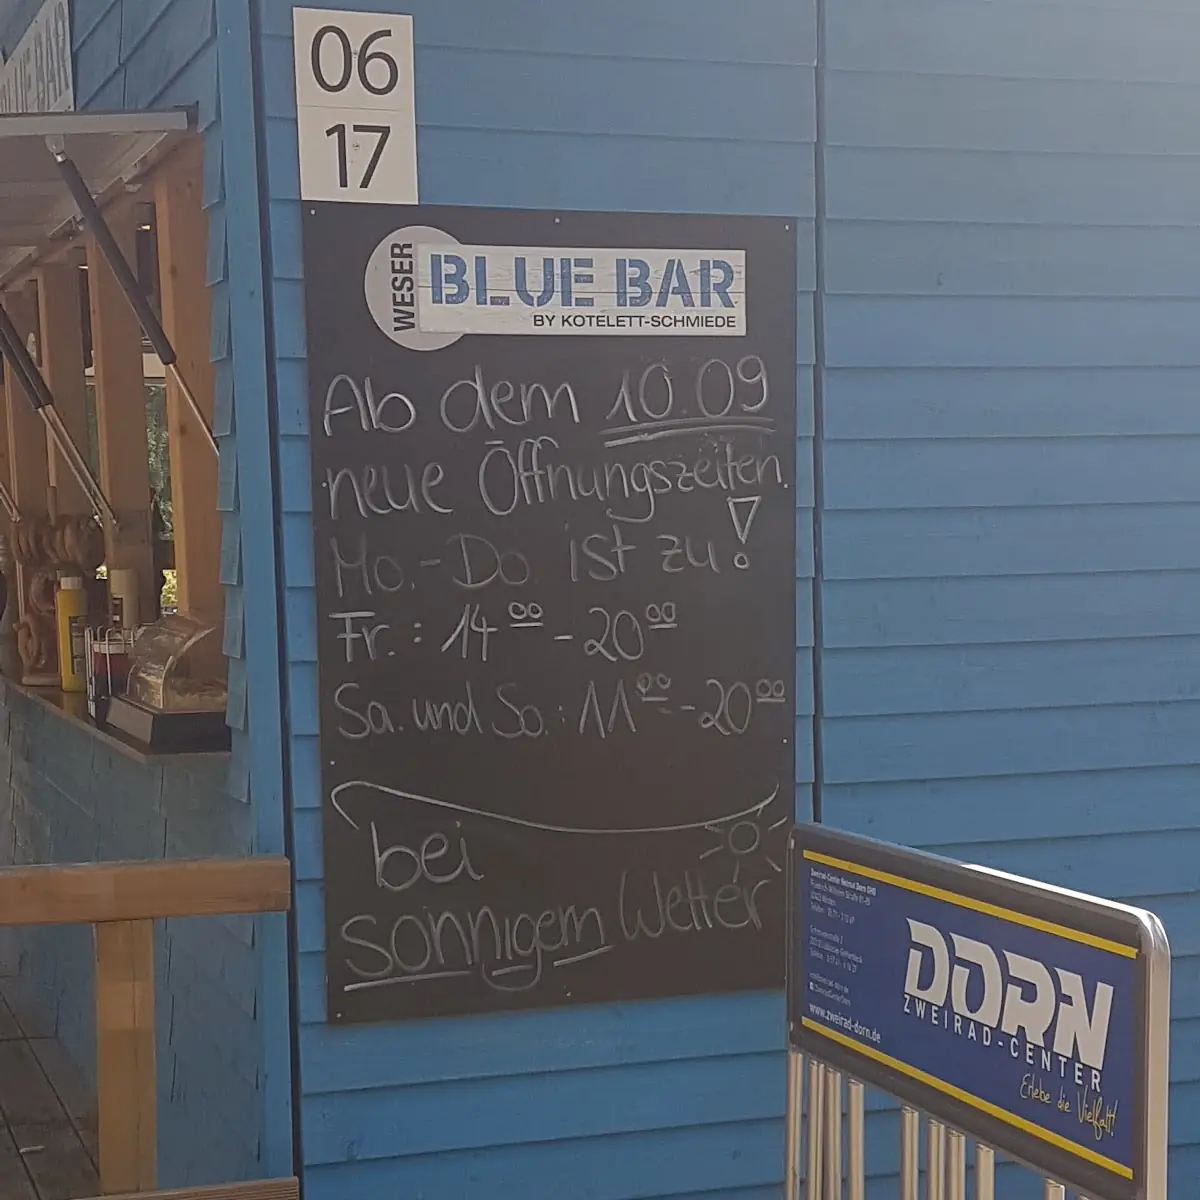 BLUE BAR
06
17
WESER
BLUE BAR
BY KOTELETT-SCHMIEDE
Ab dem 10.09
neue Öffnungszeiten
Mo.-Do. ist zu!
Fr.: 14 00 - 20 00
Sa. und So.: 11 00 - 20 00
bei
sonnigem Wetter
DORN
ZWEIRAD-CENTER
Erlebe die Vielfalt!
www.zweirad-dorn.de